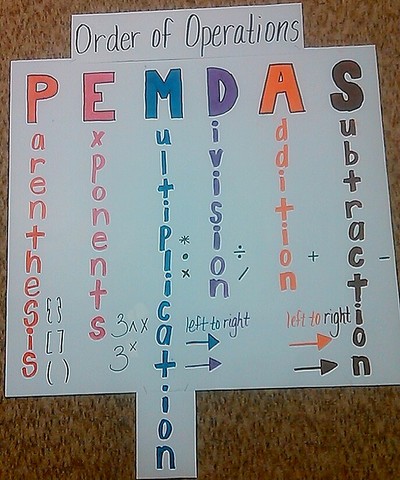 Order of Operations
PEMDAS
Parenthesis
{ }
[ ]
( )
Exponents
3^x
3ˣ
Multiplication
*
·
×
Division
÷
/
left to right
Addition
+
left to right
Subtraction
-